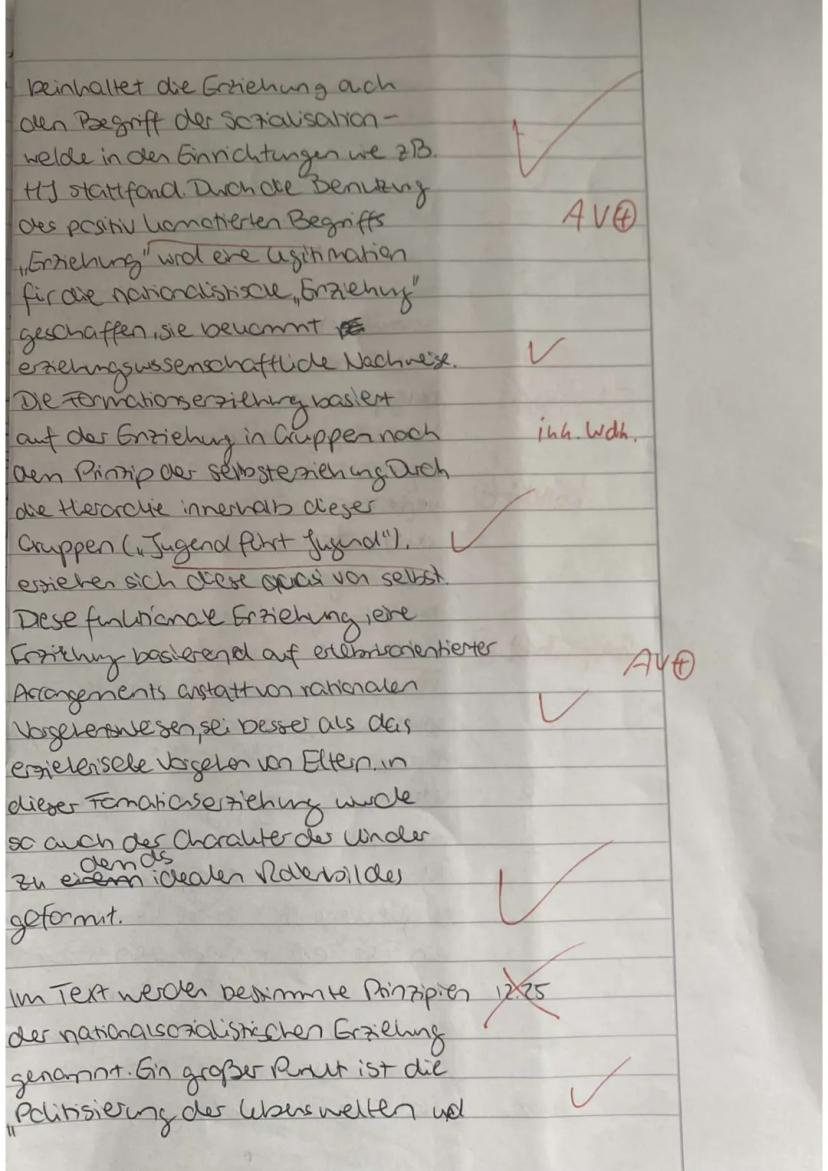 beinhaltet die Erziehung auch
den Begriff der Sozialisation -
welche in den Einrichtungen wie z.B.
HJ stattfand. Durch die Benutzung
des positiv konnotierten Begriffs
AV⊕
„Erziehung" wird eine Legitimation
für die nationalistische „Erziehung"
geschaffen, sie bekommt
erziehungswissenschaftliche Nachweise.
Die Formationserziehung basiert
auf der Erziehung in Gruppen nach
inh. Wdh.
dem Prinzip der Selbsterziehung. Durch
die Hierarchie innerhalb dieser
Gruppen („Jugend führt Jugend"),
erziehen sich diese quasi von selbst.
Diese funktionale Erziehung, eine
Erziehung basierend auf erlebnisorientierter
AV⊕
Arrangements anstatt von rationalen
Vorgehensweisen, sei besser als das
erzieherische Vorgehen von Eltern. in
dieser Formationserziehung wurde
so auch der Charakter der Kinder
zu dem des idealen
geformt.
Im Text werden bestimmte Prinzipien
der nationalsozialistischen Erziehung
genannt. Ein großer Punkt ist die
„Politisierung der Lebenswelten und